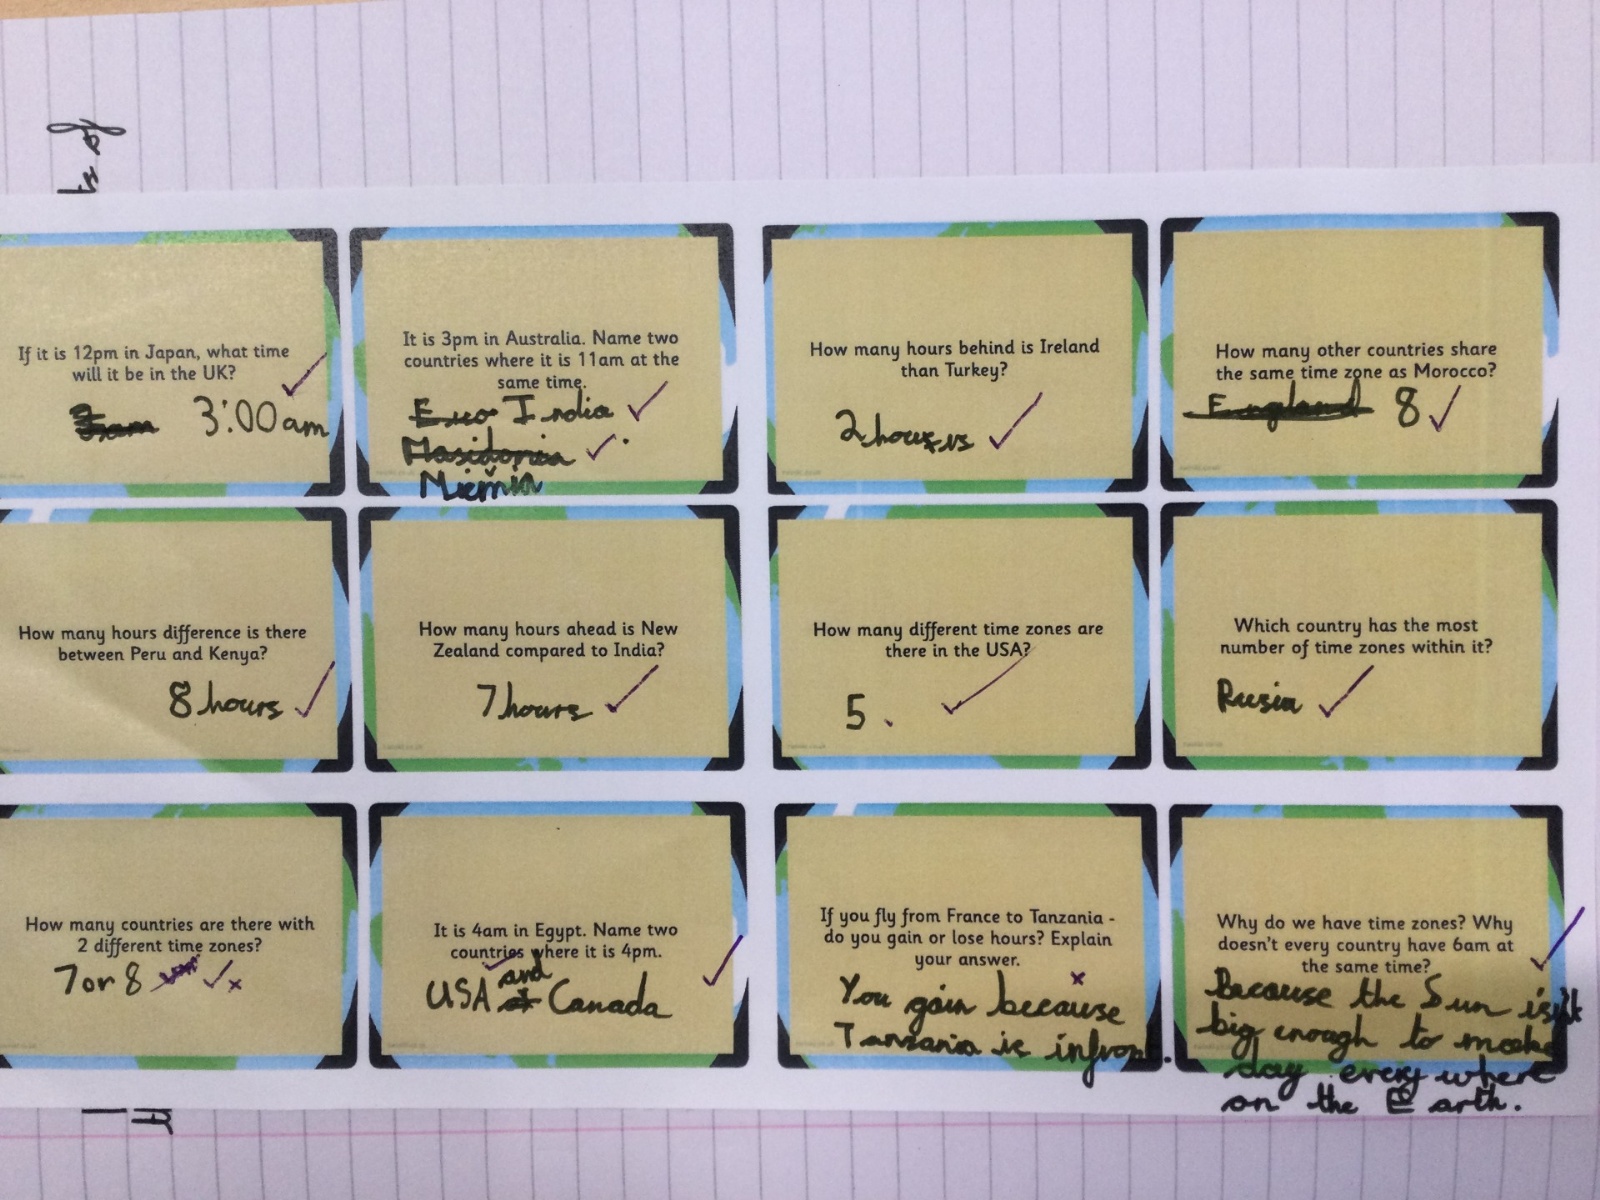 ts of
If it is 12pm in Japan, what time
will it be in the UK?
3:00am
It is 3pm in Australia. Name two
countries where it is 11am at the
same time.
India
Masidonia
How many hours behind is Ireland
than Turkey?
2 hours
How many other countries share
the same time zone as Morocco?
England 8
How many hours difference is there
between Peru and Kenya?
8 hours
How many hours ahead is New
Zealand compared to India?
7 hours
How many different time zones are
there in the USA?
5.
Which country has the most
number of time zones within it?
Rusia
How many countries are there with
2 different time zones?
7 or 8
It is 4am in Egypt. Name two
countries where it is 4pm.
USA and Canada
If you fly from France to Tanzania -
do you gain or lose hours? Explain
your answer.
You gain because
Tanzania is infront.
Why do we have time zones? Why
doesn't every country have 6am at
the same time?
Because the Sun isn't
big enogh to make
day every where
on the Earth.